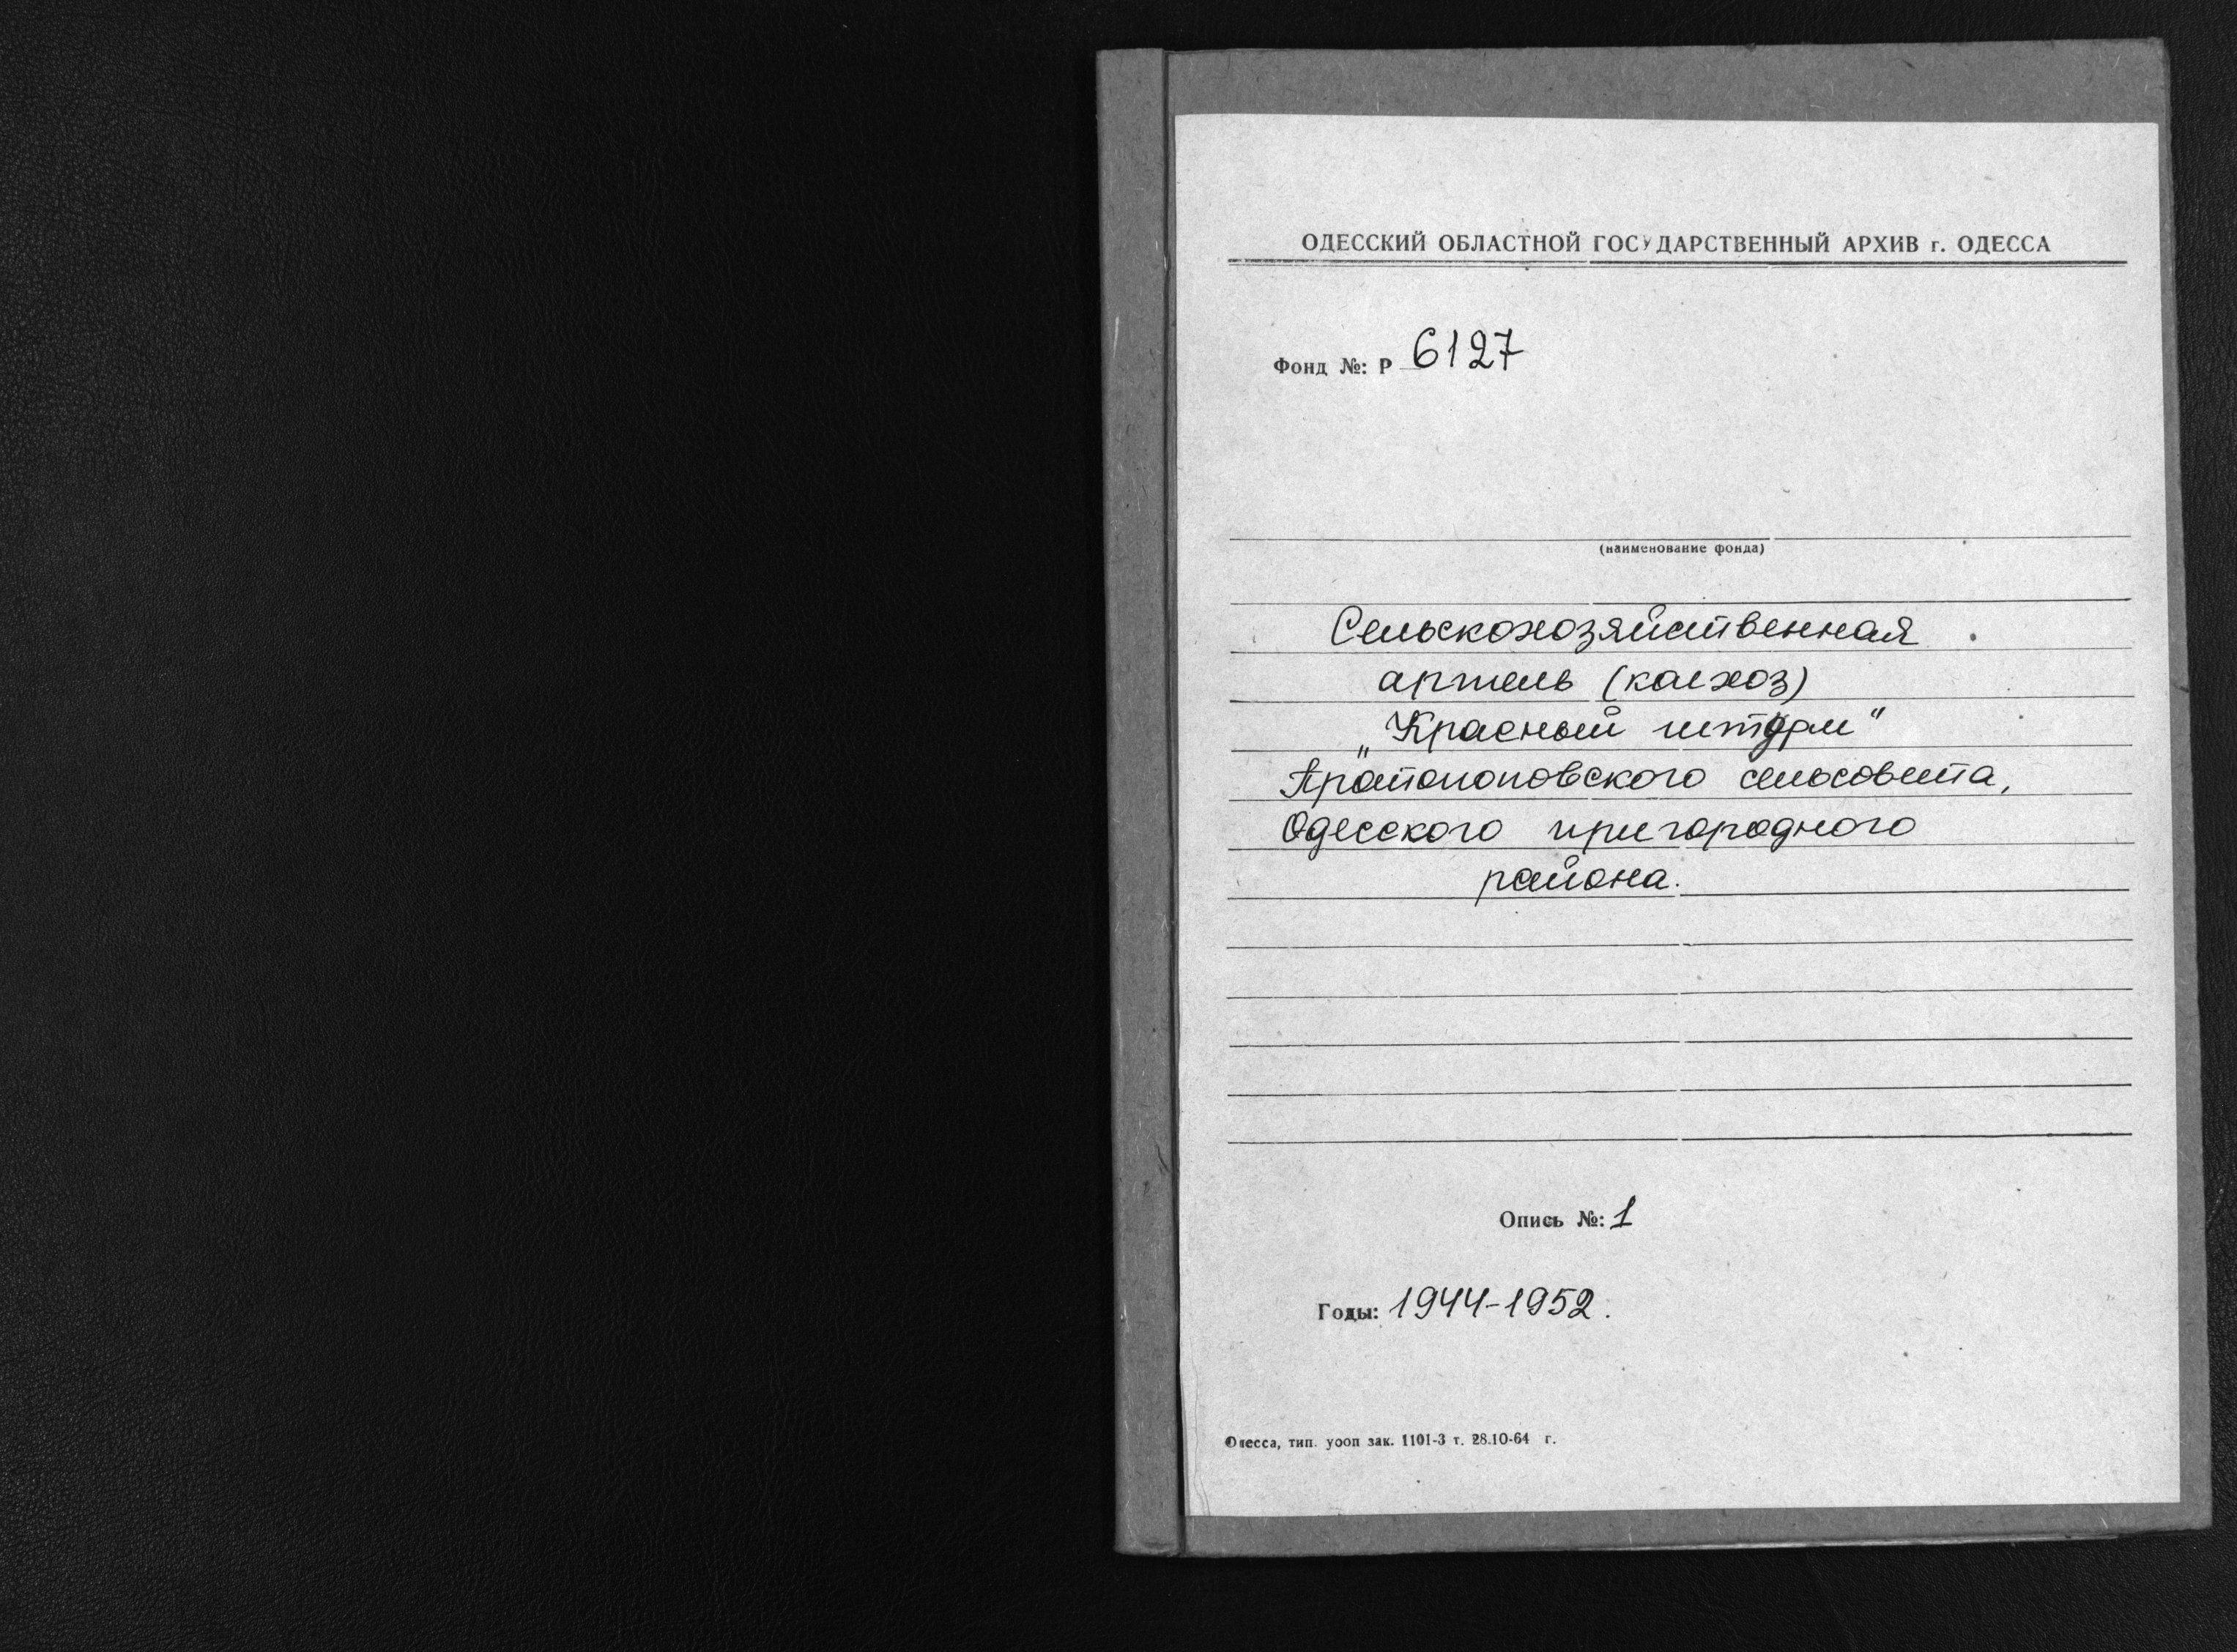 ОДЕССКИЙ ОБЛАСТНОЙ ГОСУДАРСТВЕННЫЙ АРХИВ г. ОДЕССА
Фонд №: Р 6127
(наименование фонда)
Сельскохозяйственная
артель (колхоз)
„Красный штурм"
Протопоповского сельсовета,
Одесского пригородного
района.
Опись №: 1
Годы: 1944-1952.
Одесса, тип. уооп зак. 1101-3 т. 28.10-64 г.